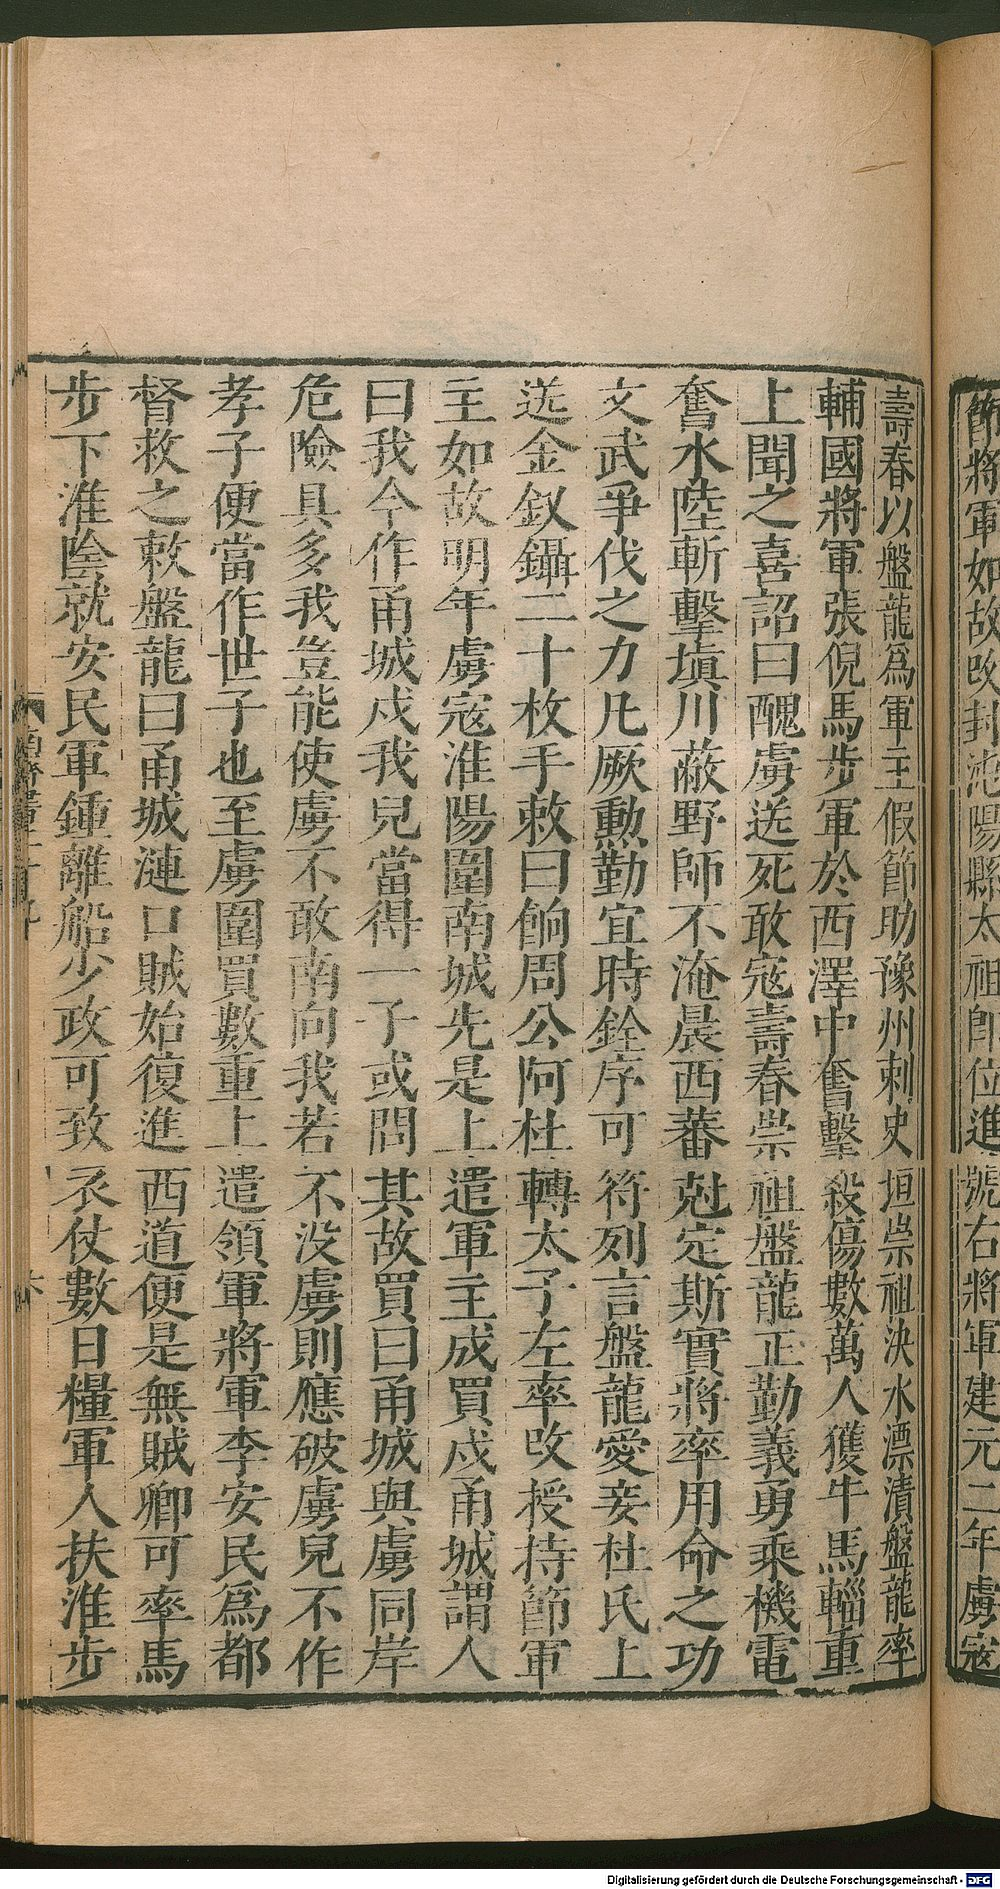 節將軍如故改封沌陽縣太祖即位進號右將軍建元二年虜寇
壽春以盤龍爲軍主假節助豫州刺史垣崇祖決水漂漬盤龍率
輔國將軍張倪馬步軍於西澤中奮擊殺傷數萬人獲牛馬輜重
上聞之喜詔曰醜虜送死敢寇壽春崇祖盤龍正勤義勇乘機電
奮水陸斬擊塡川蔽野師不淹晨西蕃尅定斯實將率用命之功
文武爭伐之力凡厥勳勤宜時銓序可符列言盤龍愛妾杜氏上
送金釵鑷二十枚手敕曰餉周公阿杜轉太子左率改授持節軍
主如故明年虜寇淮陽圍南城先是上遣軍主成買戍甬城謂人
曰我今作甬城戍我兒當得一子或問其故買曰甬城與虜同岸
危險具多我豈能使虜不敢南向我若不没虜則應破虜兒不作
孝子便當作世子也至虜圍買數重上遣領軍將軍李安民爲都
督救之敕盤龍曰甬城漣口賊始復進西道便是無賊卿可率馬
步下淮陰就安民軍鍾離船少政可致衣仗數日糧軍人扶淮步
六
Digitalisierung gefördert durch die Deutsche Forschungsgemeinschaft - DFG